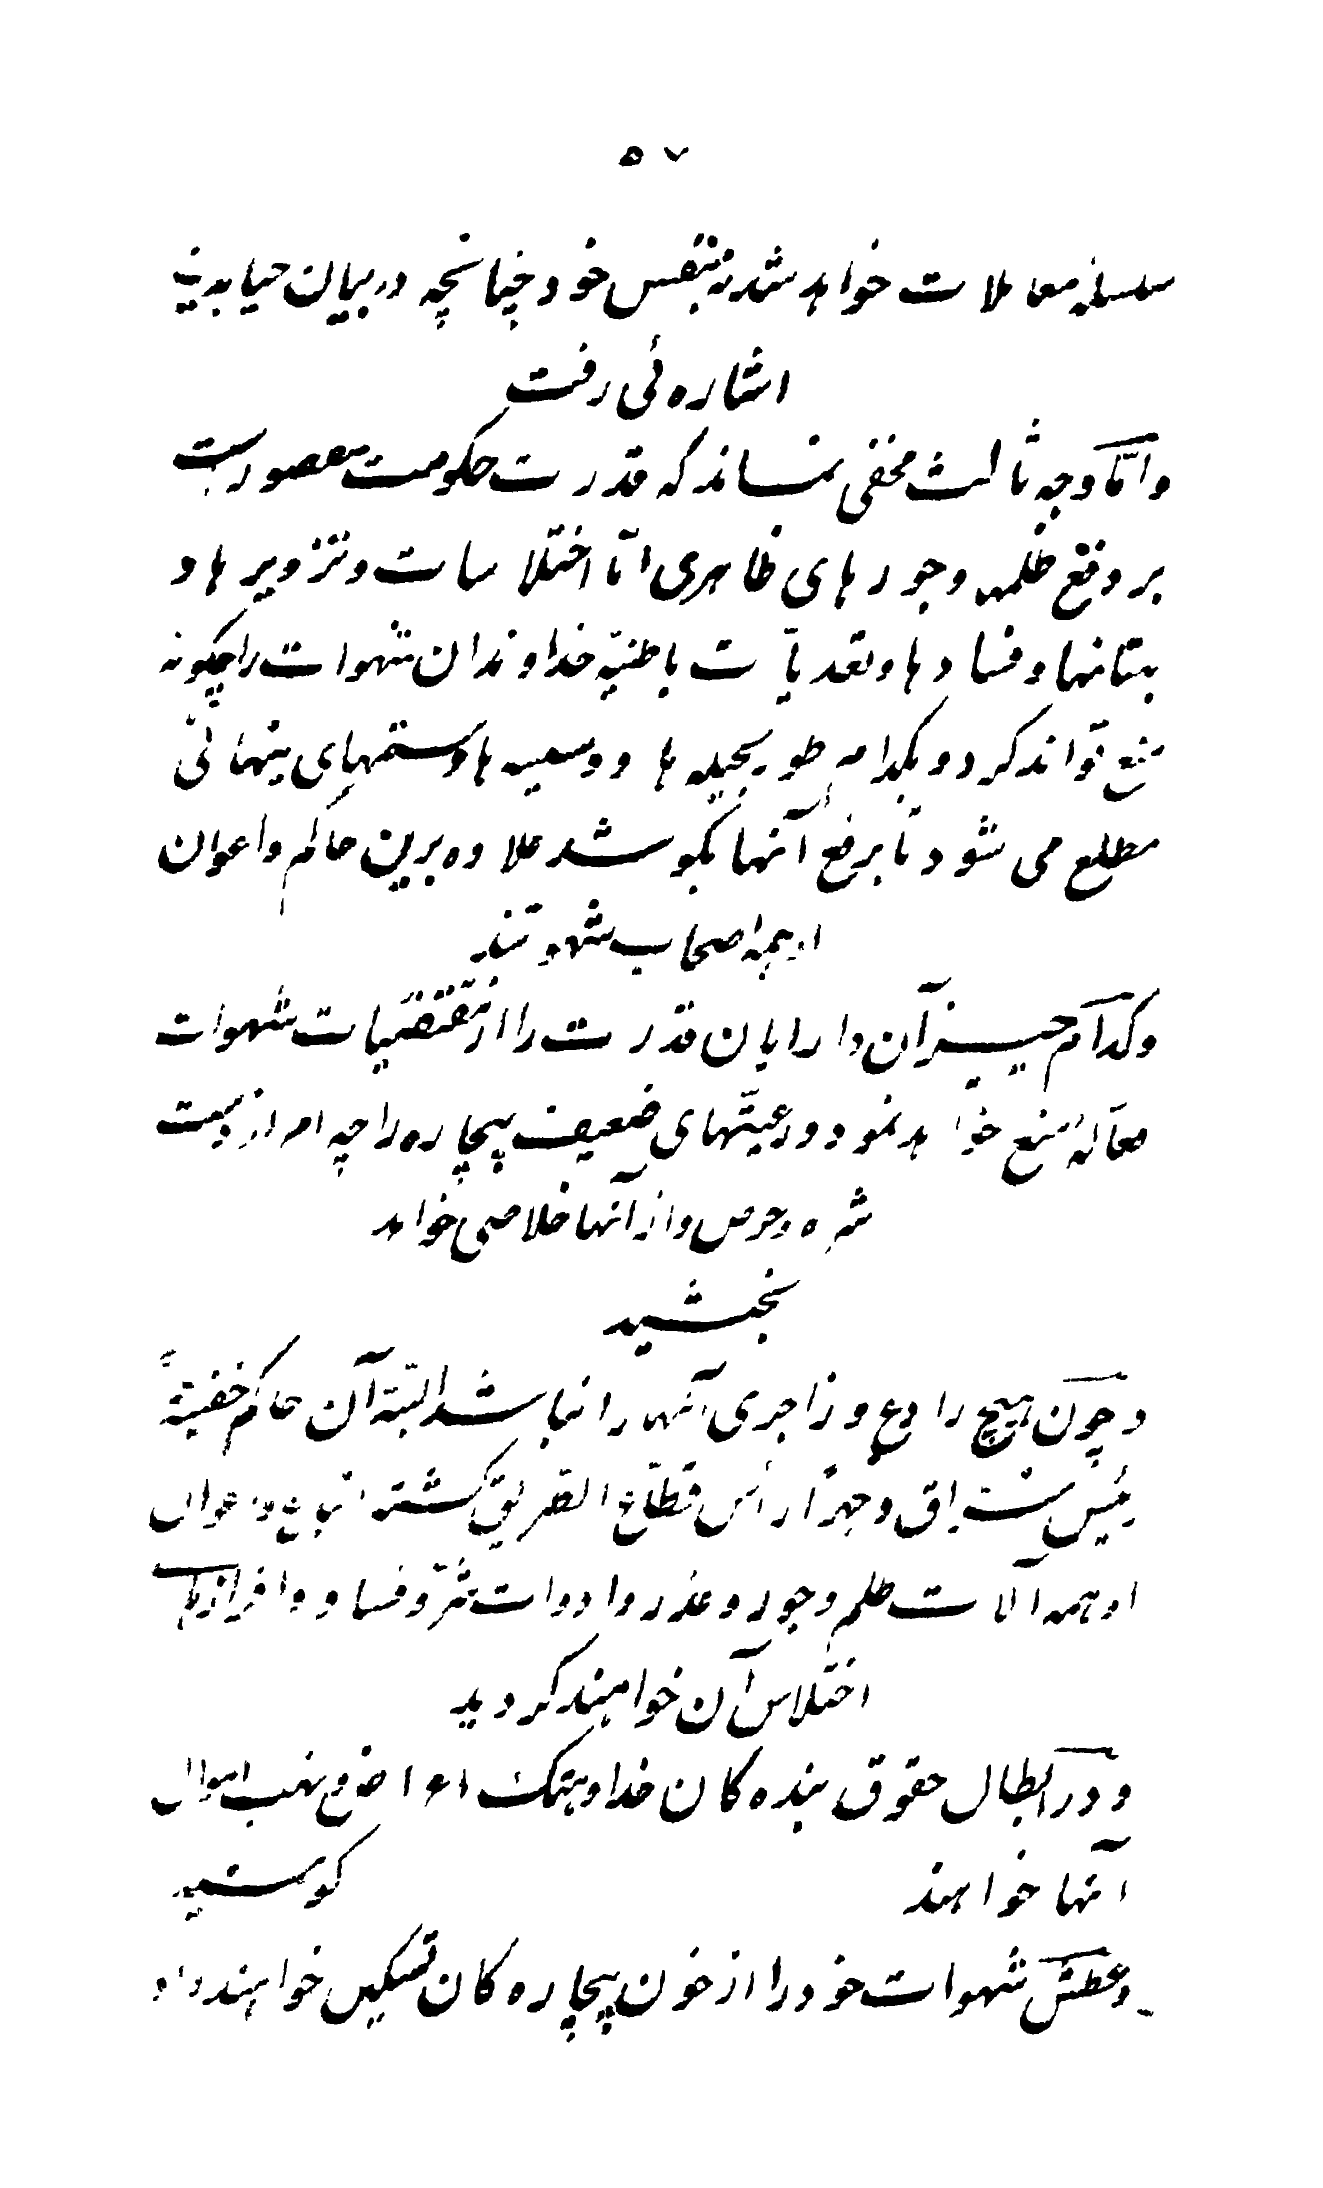 ۵۷
سلسلهٔ معاملات خواهد شد نه بنفس خود چنانچه در بیان حیا بدین
اشاره ئی رفت
و امّا وجه ثالث مخفی نماند که قدرت حکومت مقصور است
بر دفع ظلمها و جورهای ظاهری امّا اختلاسات و تزویرها و
بهتانها و فسادها و تعدیّات باطنیّه خداوندان شهوات را چگونه
منع تواند کرد و بکدام طور بحیله ها و دسیسه ها و ستمهای پنهانی
مطلع می شود تا برفع آنها بکوشد علاوه برین حاکم و اعوان
او همه اصحاب شهوتند
و کدام چیز آن دارایان قدرت را از مقتضیات شهوات
منع خواهد نمود و رعیّتهای ضعیف بیچاره را چه امر از دست
شره و حرص و از آنها خلاصی خواهد
بخشید
و چون هیچ رادع و زاجری آنها را نباشد البتّه آن حاکم خفیةً
رئیس سُرّاق و جهرًا رأس قطّاع الطریق گشته اتباع و اعوان
او همه آلات ظلم و جور و غدر و ادوات شرّ و فساد و افزارهای
اختلاس آن خواهند گردید
و در ابطال حقوق بنده کان خدا و هتک اعراض و نهب اموال
آنها خواهند کوشید
و عطش شهوات خود را از خون بیچاره کان تسکین خواهند داد